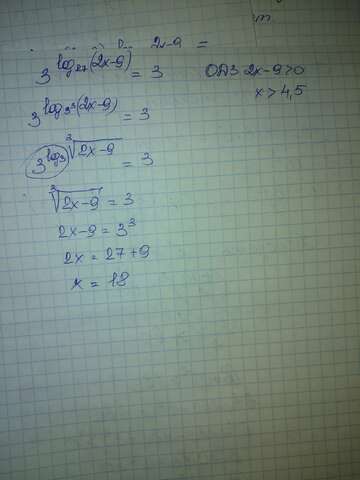 2x-9 =
3^{log_{27}(2x-9)} = 3 ОДЗ 2x-9>0
x > 4,5
3^{log_{3^3}(2x-9)} = 3
3^{log_3 \sqrt[3]{2x-9}} = 3
\sqrt[3]{2x-9} = 3
2x-9 = 3^3
2x = 27+9
x = 18